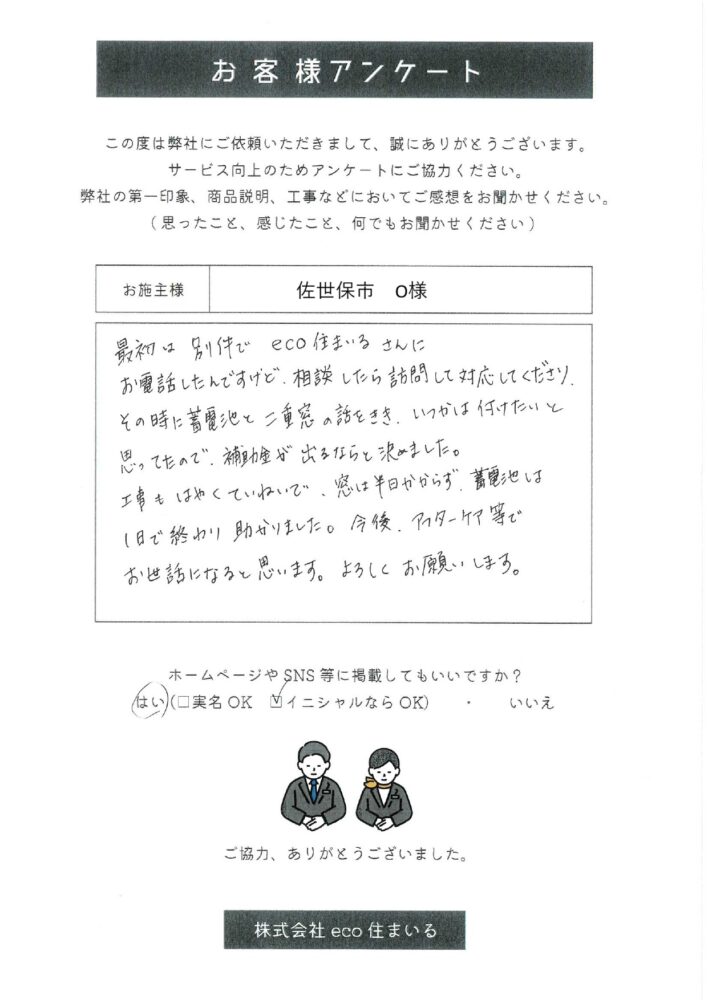 お客様アンケート
この度は弊社にご依頼いただきまして、誠にありがとうございます。
サービス向上のためアンケートにご協力ください。
弊社の第一印象、商品説明、工事などにおいてご感想をお聞かせください。
(思ったこと、感じたこと、何でもお聞かせください)
お施主様 佐世保市 O様
最初は別件で eco住まいるさんに
お電話したんですけど、相談したら訪問して対応してくださり、
その時に蓄電池と二重窓の話をきき、いつかは付けたいと
思ってたので、補助金が出るならと決めました。
工事もはやくていねいで、窓は半日かからず、蓄電池は
1日で終わり助かりました。今後、アフターケア等で
お世話になると思います。よろしくお願いします。
ホームページやSNS等に掲載してもいいですか?
はい(□実名OK ☑イニシャルならOK) ・ いいえ
ご協力、ありがとうございました。
株式会社eco住まいる